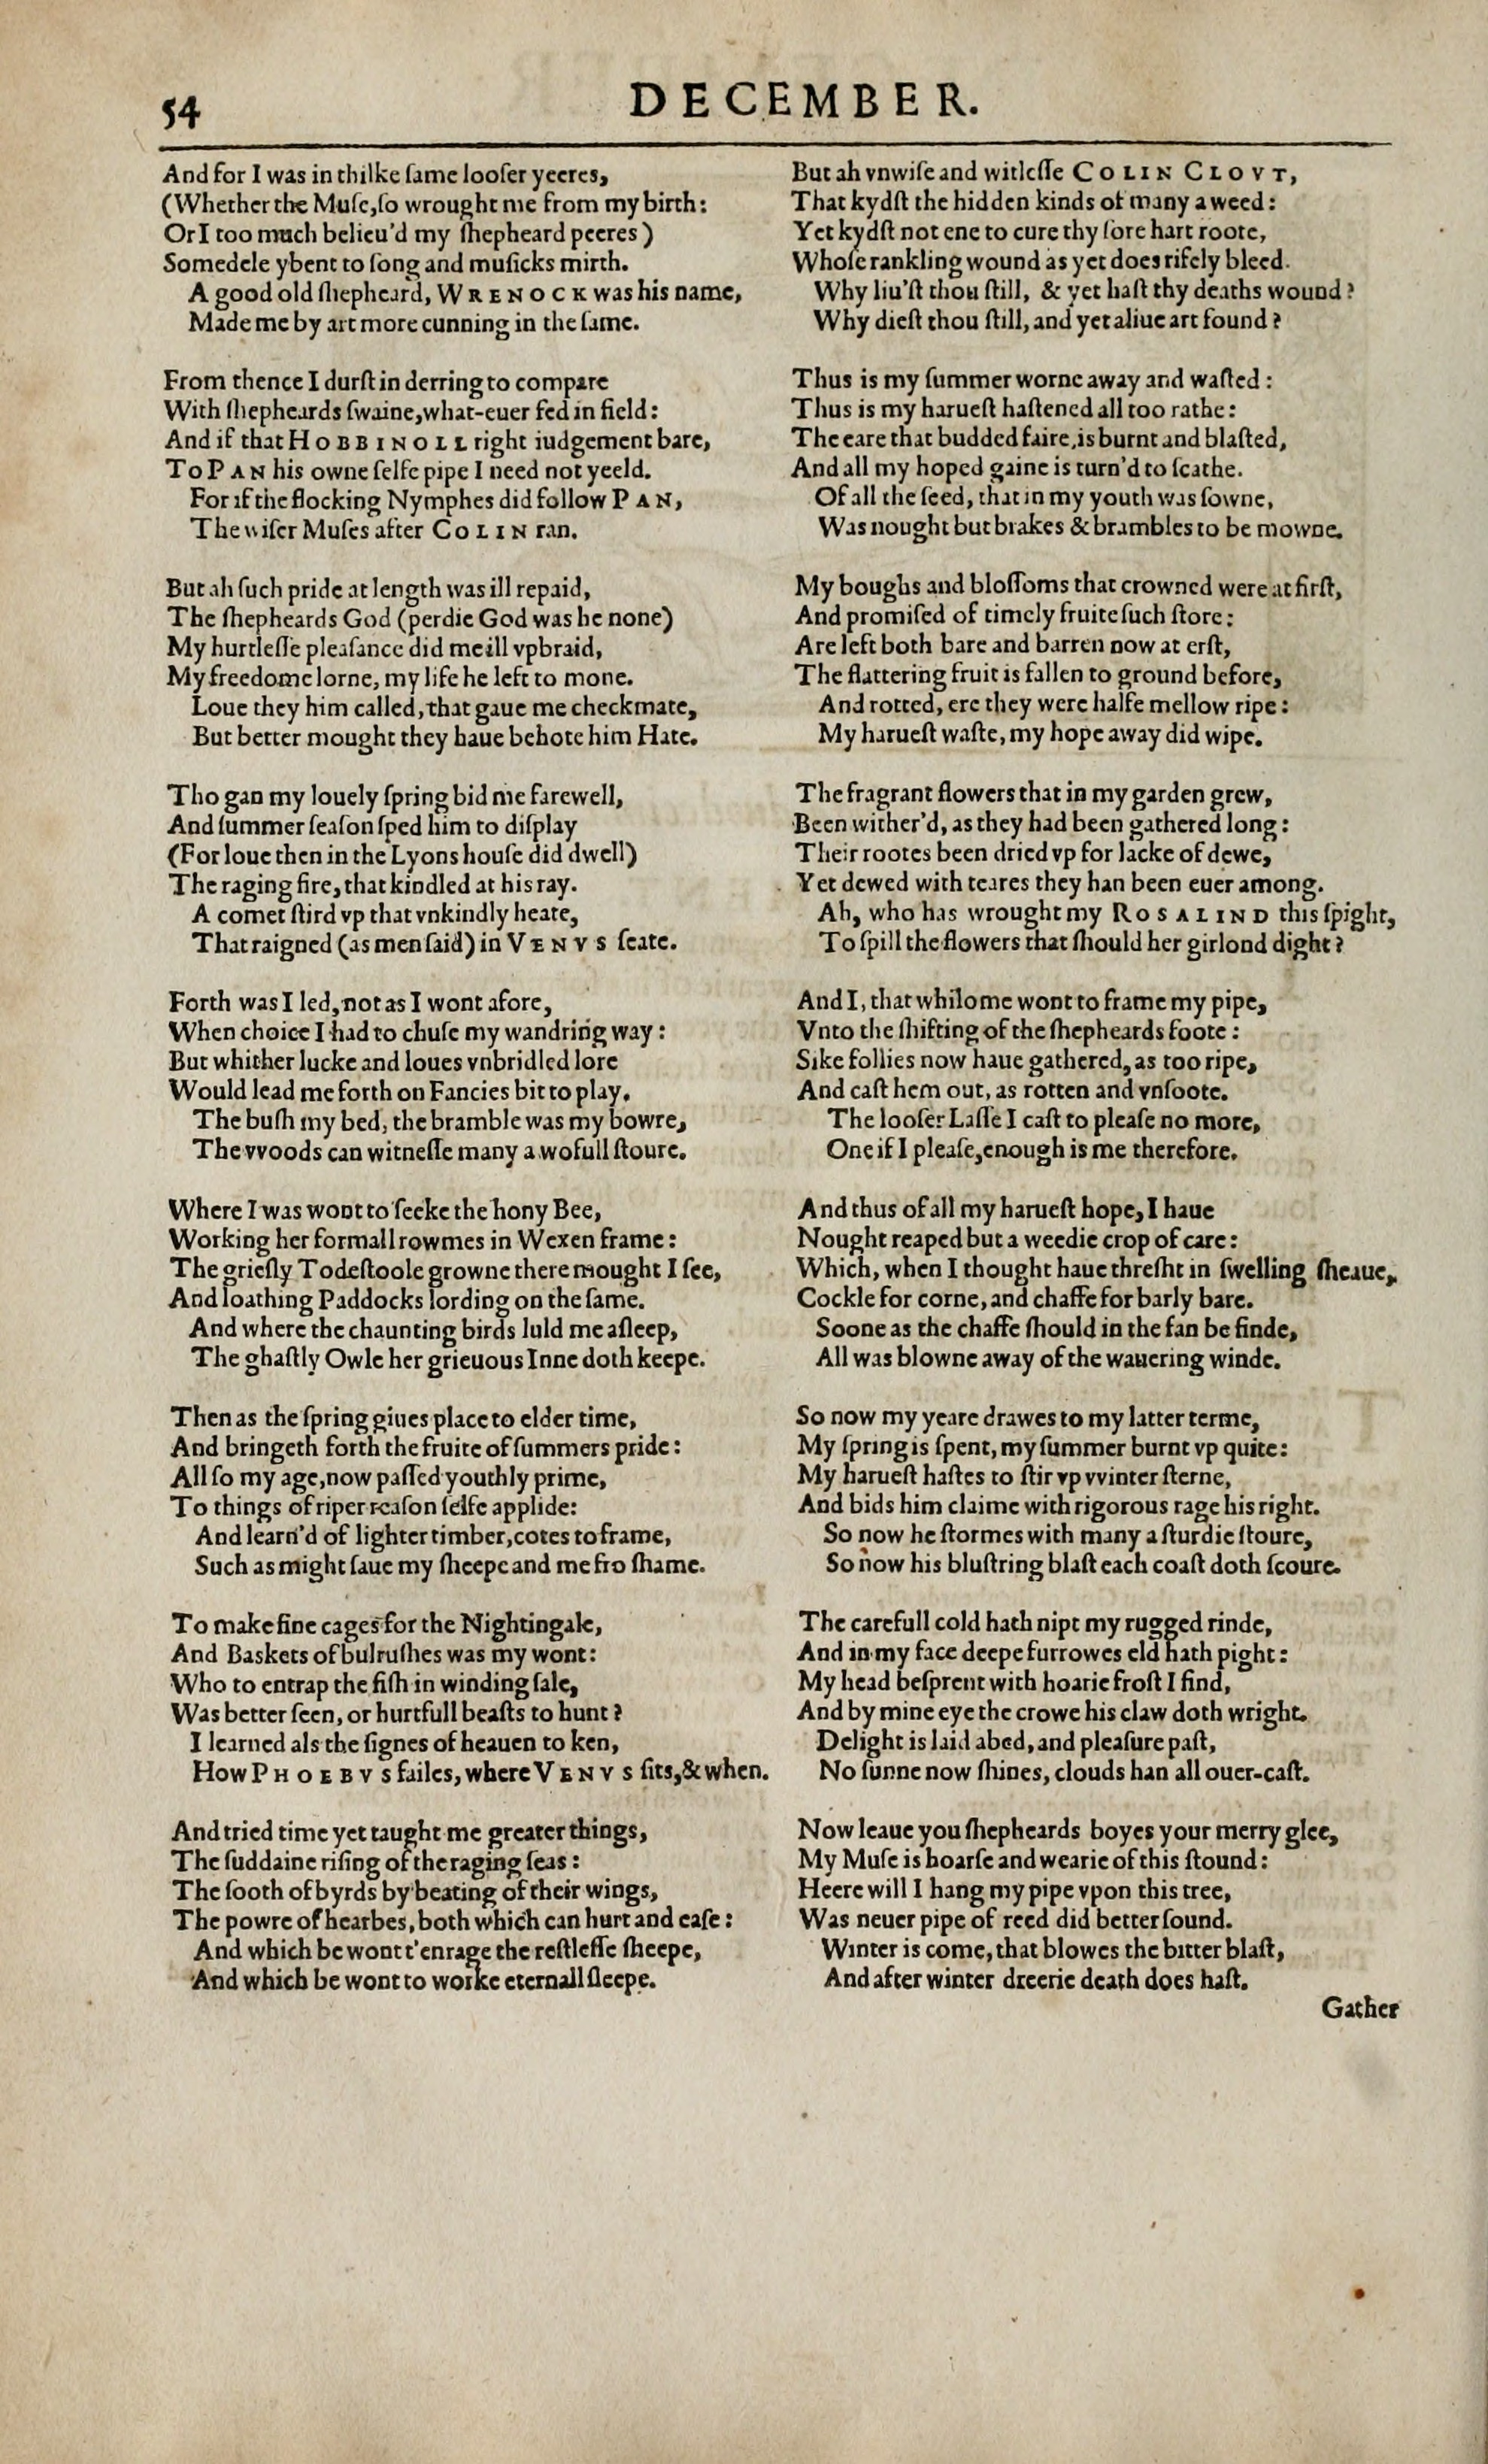 54
DECEMBER.
And for I was in thilke ſame looſer yeeres,
(Whether the Muſe, ſo wrought me from my birth:
Or I too much belieu'd my ſhepheard peeres)
Somedele ybent to ſong and muſicks mirth.
A good old ſhepheard, WRENOCK was his name,
Made me by art more cunning in the ſame.
From thence I durſt in derring to compare
With ſhepheards ſwaine, what-euer fed in field:
And if that HOBBINOLL right iudgement bare,
To PAN his owne ſelfe pipe I need not yeeld.
For if the flocking Nymphes did follow PAN,
The wiſer Muſes after COLIN ran.
But ah ſuch pride at length was ill repaid,
The ſhepheards God (perdie God was he none)
My hurtleſſe pleaſance did me ill vpbraid,
My freedome lorne, my life he left to mone.
Loue they him called, that gaue me checkmate,
But better mought they haue behote him Hate.
Tho gan my louely ſpring bid me farewell,
And ſummer ſeaſon ſped him to diſplay
(For loue then in the Lyons houſe did dwell)
The raging fire, that kindled at his ray.
A comet ſtird vp that vnkindly heate,
That raigned (as men ſaid) in VENVS ſeate.
Forth was I led, not as I wont afore,
When choice I had to chuſe my wandring way:
But whither lucke and loues vnbridled lore
Would lead me forth on Fancies bit to play,
The buſh my bed, the bramble was my bowre,
The vvoods can witneſſe many a wofull ſtoure.
Where I was wont to ſeeke the hony Bee,
Working her formall rowmes in Wexen frame:
The grieſly Todeſtoole growne there mought I ſee,
And loathing Paddocks lording on the ſame.
And where the chaunting birds luld me aſleep,
The ghaſtly Owle her grieuous Inne doth keepe.
Then as the ſpring giues place to elder time,
And bringeth forth the fruite of ſummers pride:
All ſo my age, now paſſed youthly prime,
To things of riper reaſon ſelfe applide:
And learn'd of lighter timber, cotes to frame,
Such as might ſaue my ſheepe and me fro ſhame.
To make fine cages for the Nightingale,
And Baskets of bulruſhes was my wont:
Who to entrap the fiſh in winding ſale,
Was better ſeen, or hurtfull beaſts to hunt?
I learned als the ſignes of heauen to ken,
How PHOEBVS failes, where VENVS ſits, & when.
And tried time yet taught me greater things,
The ſuddaine riſing of the raging ſeas:
The ſooth of byrds by beating of their wings,
The powre of hearbes, both which can hurt and eaſe:
And which be wont t'enrage the reſtleſſe ſheepe,
And which be wont to worke eternall ſleepe.
But ah vnwiſe and witleſſe COLIN CLOVT,
That kydſt the hidden kinds of many a weed:
Yet kydſt not ene to cure thy ſore hart roote,
Whoſe rankling wound as yet does rifely bleed.
Why liu'ſt thou ſtill, & yet haſt thy deaths wound?
Why dieſt thou ſtill, and yet aliue art found?
Thus is my ſummer worne away and waſted:
Thus is my harueſt haſtened all too rathe:
The eare that budded faire, is burnt and blaſted,
And all my hoped gaine is turn'd to ſcathe.
Of all the ſeed, that in my youth was ſowne,
Was nought but brakes & brambles to be mowne.
My boughs and bloſſoms that crowned were at firſt,
And promiſed of timely fruite ſuch ſtore:
Are left both bare and barren now at erſt,
The flattering fruit is fallen to ground before,
And rotted, ere they were halfe mellow ripe:
My harueſt waſte, my hope away did wipe.
The fragrant flowers that in my garden grew,
Been wither'd, as they had been gathered long:
Their rootes been dried vp for lacke of dewe,
Yet dewed with teares they han been euer among.
Ah, who has wrought my ROSALIND this ſpight,
To ſpill the flowers that ſhould her girlond dight?
And I, that whilome wont to frame my pipe,
Vnto the ſhifting of the ſhepheards foote:
Sike follies now haue gathered, as too ripe,
And caſt hem out, as rotten and vnſoote.
The looſer Laſſe I caſt to pleaſe no more,
One if I pleaſe, enough is me therefore.
And thus of all my harueſt hope, I haue
Nought reaped but a weedie crop of care:
Which, when I thought haue threſht in ſwelling ſheaue,
Cockle for corne, and chaffe for barly bare.
Soone as the chaffe ſhould in the fan be finde,
All was blowne away of the wauering winde.
So now my yeare drawes to my latter terme,
My ſpring is ſpent, my ſummer burnt vp quite:
My harueſt haſtes to ſtir vp vvinter ſterne,
And bids him claime with rigorous rage his right.
So now he ſtormes with many a ſturdie ſtoure,
So now his bluſtring blaſt each coaſt doth ſcoure.
The carefull cold hath nipt my rugged rinde,
And in my face deepe furrowes eld hath pight:
My head beſprent with hoarie froſt I find,
And by mine eye the crowe his claw doth wright.
Delight is laid abed, and pleaſure paſt,
No ſunne now ſhines, clouds han all ouer-caſt.
Now leaue you ſhepheards boyes your merry glee,
My Muſe is hoarſe and wearie of this ſtound:
Heere will I hang my pipe vpon this tree,
Was neuer pipe of reed did better ſound.
Winter is come, that blowes the bitter blaſt,
And after winter dreerie death does haſt.
Gather